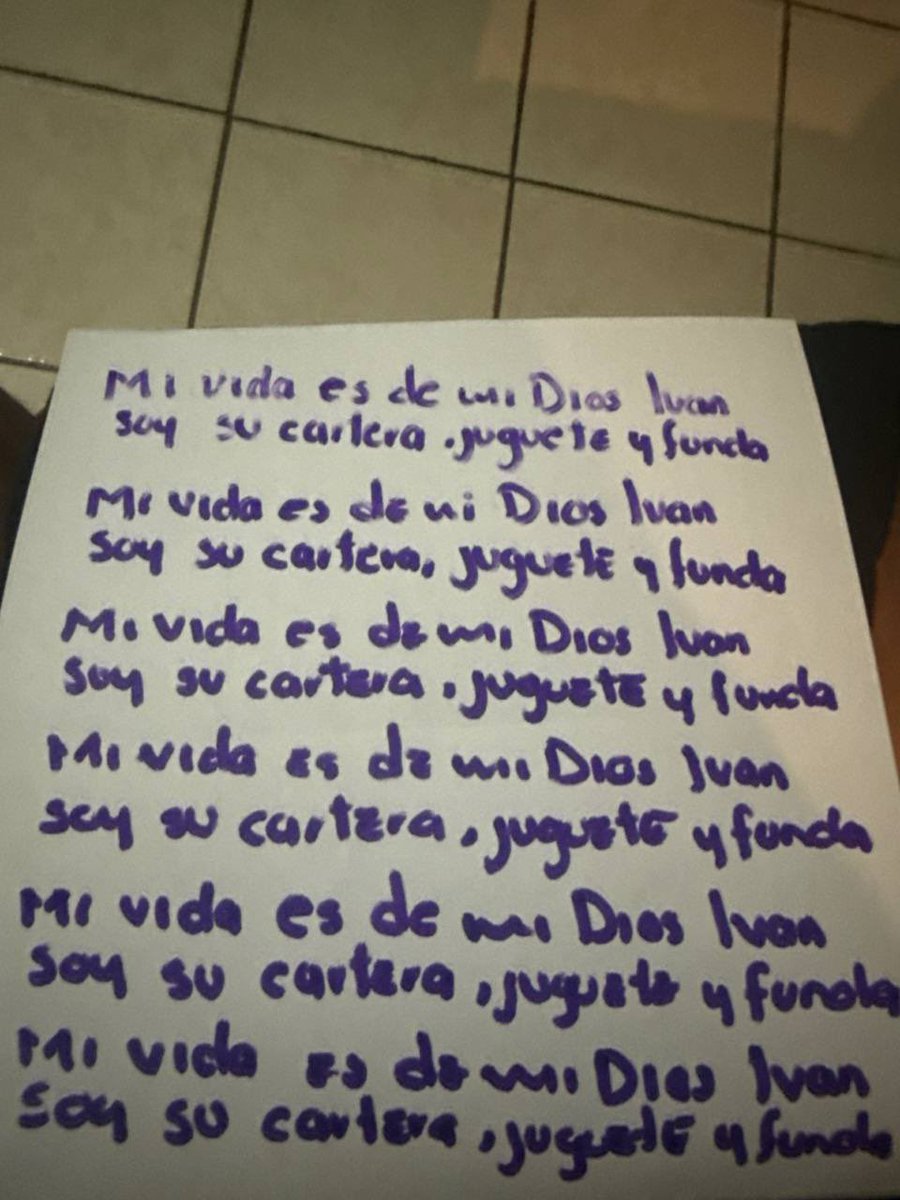 Mi vida es de mi Dios Ivan
soy su cartera, juguete y funda
Mi vida es de mi Dios Ivan
Soy su cartera, juguete y funda
Mi vida es de mi Dios Ivan
Soy su cartera, juguete y funda
Mi vida es de mi Dios Ivan
soy su cartera, juguete y funda
Mi vida es de mi Dios Ivan
Soy su cartera, juguete y funda
Mi vida es de mi Dios Ivan
Soy su cartera, juguete y funda